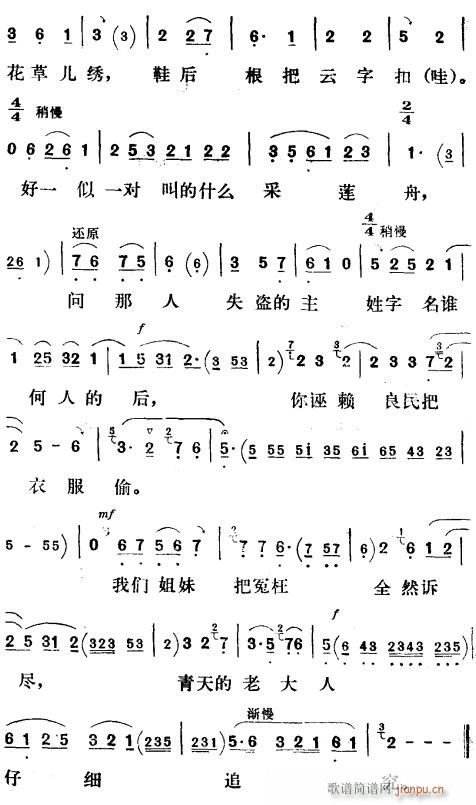 3 6 1 | 3 (3) | 2 2 7 | 6· 1 | 2 2 | 5 2 |
花草儿绣， 鞋后 根把云字扣(哇)。
4/4 稍慢 2/4
0 6 2 6 1 | 2 5 3 2 1 2 2 | 3 5 6 1 2 3 | 1· (3 |
好一似一对叫的什么采莲舟，
还原 4/4 稍慢
2 6 1) | 7 6 7 5 | 6 (6) | 3 5 7 | 6 1 0 | 5 2 5 2 1 |
问那人失盗的主姓字名谁
f
1 2 5 3 2 1 | 1 5 3 1 2· (3 5 3) | 2 3 2 | 2 3 3 7 2 |
何人的后， 你诬赖良民把
2 5 - 6 | 3· 2 7 6 | 5· (5 5 5 5 i 3 5 6 5 4 3 2 3 |
衣服偷。
mf
5 - 5 5) | 0 6 7 5 6 7 | 7 7 6· (7 5 7 | 6) 2 6 1 2 |
我们姐妹把冤枉全然诉
f
2 5 3 1 2 (3 2 3 5 3 | 2) 3 2 7 | 3· 5 7 6 | 5 (6 4 3 2 3 4 3 2 3 5) |
尽， 青天的老大人
渐慢
6 1 2 5 3 2 1 (2 3 5 | 2 3 1) 6· 3 2 1 6 1 | 2 - - - |
仔细追究。
歌谱简谱网
jianpu.cn